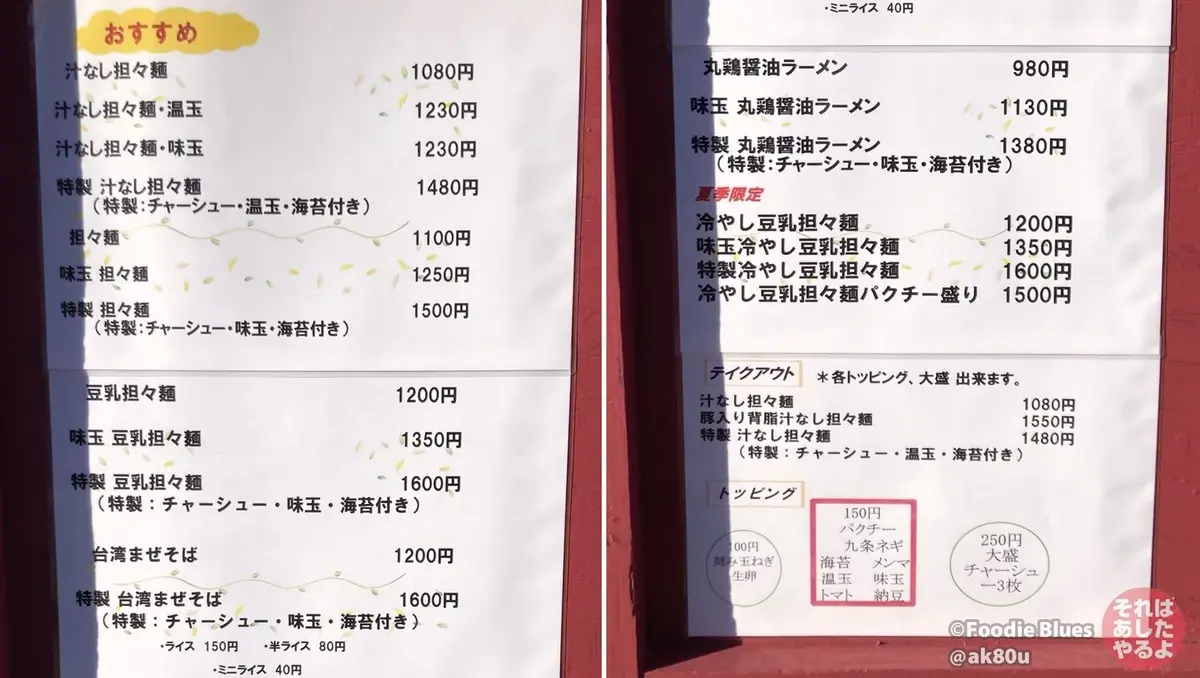 おすすめ
汁なし担々麺 1080円
汁なし担々麺・温玉 1230円
汁なし担々麺・味玉 1230円
特製 汁なし担々麺 1480円
（特製:チャーシュー・温玉・海苔付き）
担々麺 1100円
味玉 担々麺 1250円
特製 担々麺 1500円
（特製:チャーシュー・味玉・海苔付き）
豆乳担々麺 1200円
味玉 豆乳担々麺 1350円
特製 豆乳担々麺 1600円
（特製：チャーシュー・味玉・海苔付き）
台湾まぜそば 1200円
特製 台湾まぜそば 1600円
（特製：チャーシュー・味玉・海苔付き）
・ライス 150円 ・半ライス 80円
・ミニライス 40円
・ミニライス 40円
丸鶏醤油ラーメン 980円
味玉 丸鶏醤油ラーメン 1130円
特製 丸鶏醤油ラーメン 1380円
（特製:チャーシュー・味玉・海苔付き）
夏季限定
冷やし豆乳担々麺 1200円
味玉冷やし豆乳担々麺 1350円
特製冷やし豆乳担々麺 1600円
冷やし豆乳担々麺パクチー盛り 1500円
テイクアウト ＊各トッピング、大盛 出来ます。
汁なし担々麺 1080円
豚入り背脂汁なし担々麺 1550円
特製 汁なし担々麺 1480円
（特製：チャーシュー・温玉・海苔付き）
トッピング
100円
刻み玉ねぎ
生卵
150円
パクチー
九条ネギ
海苔 メンマ
温玉 味玉
トマト 納豆
250円
大盛
チャーシュ
ー3枚
©Foodie Blues
@ak80u
それは
あした
やるよ